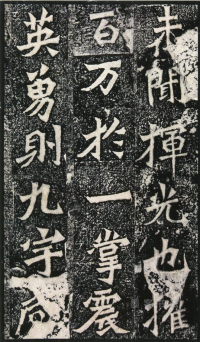 未聞揮光也摧
百万於一掌震
英勇則九宇